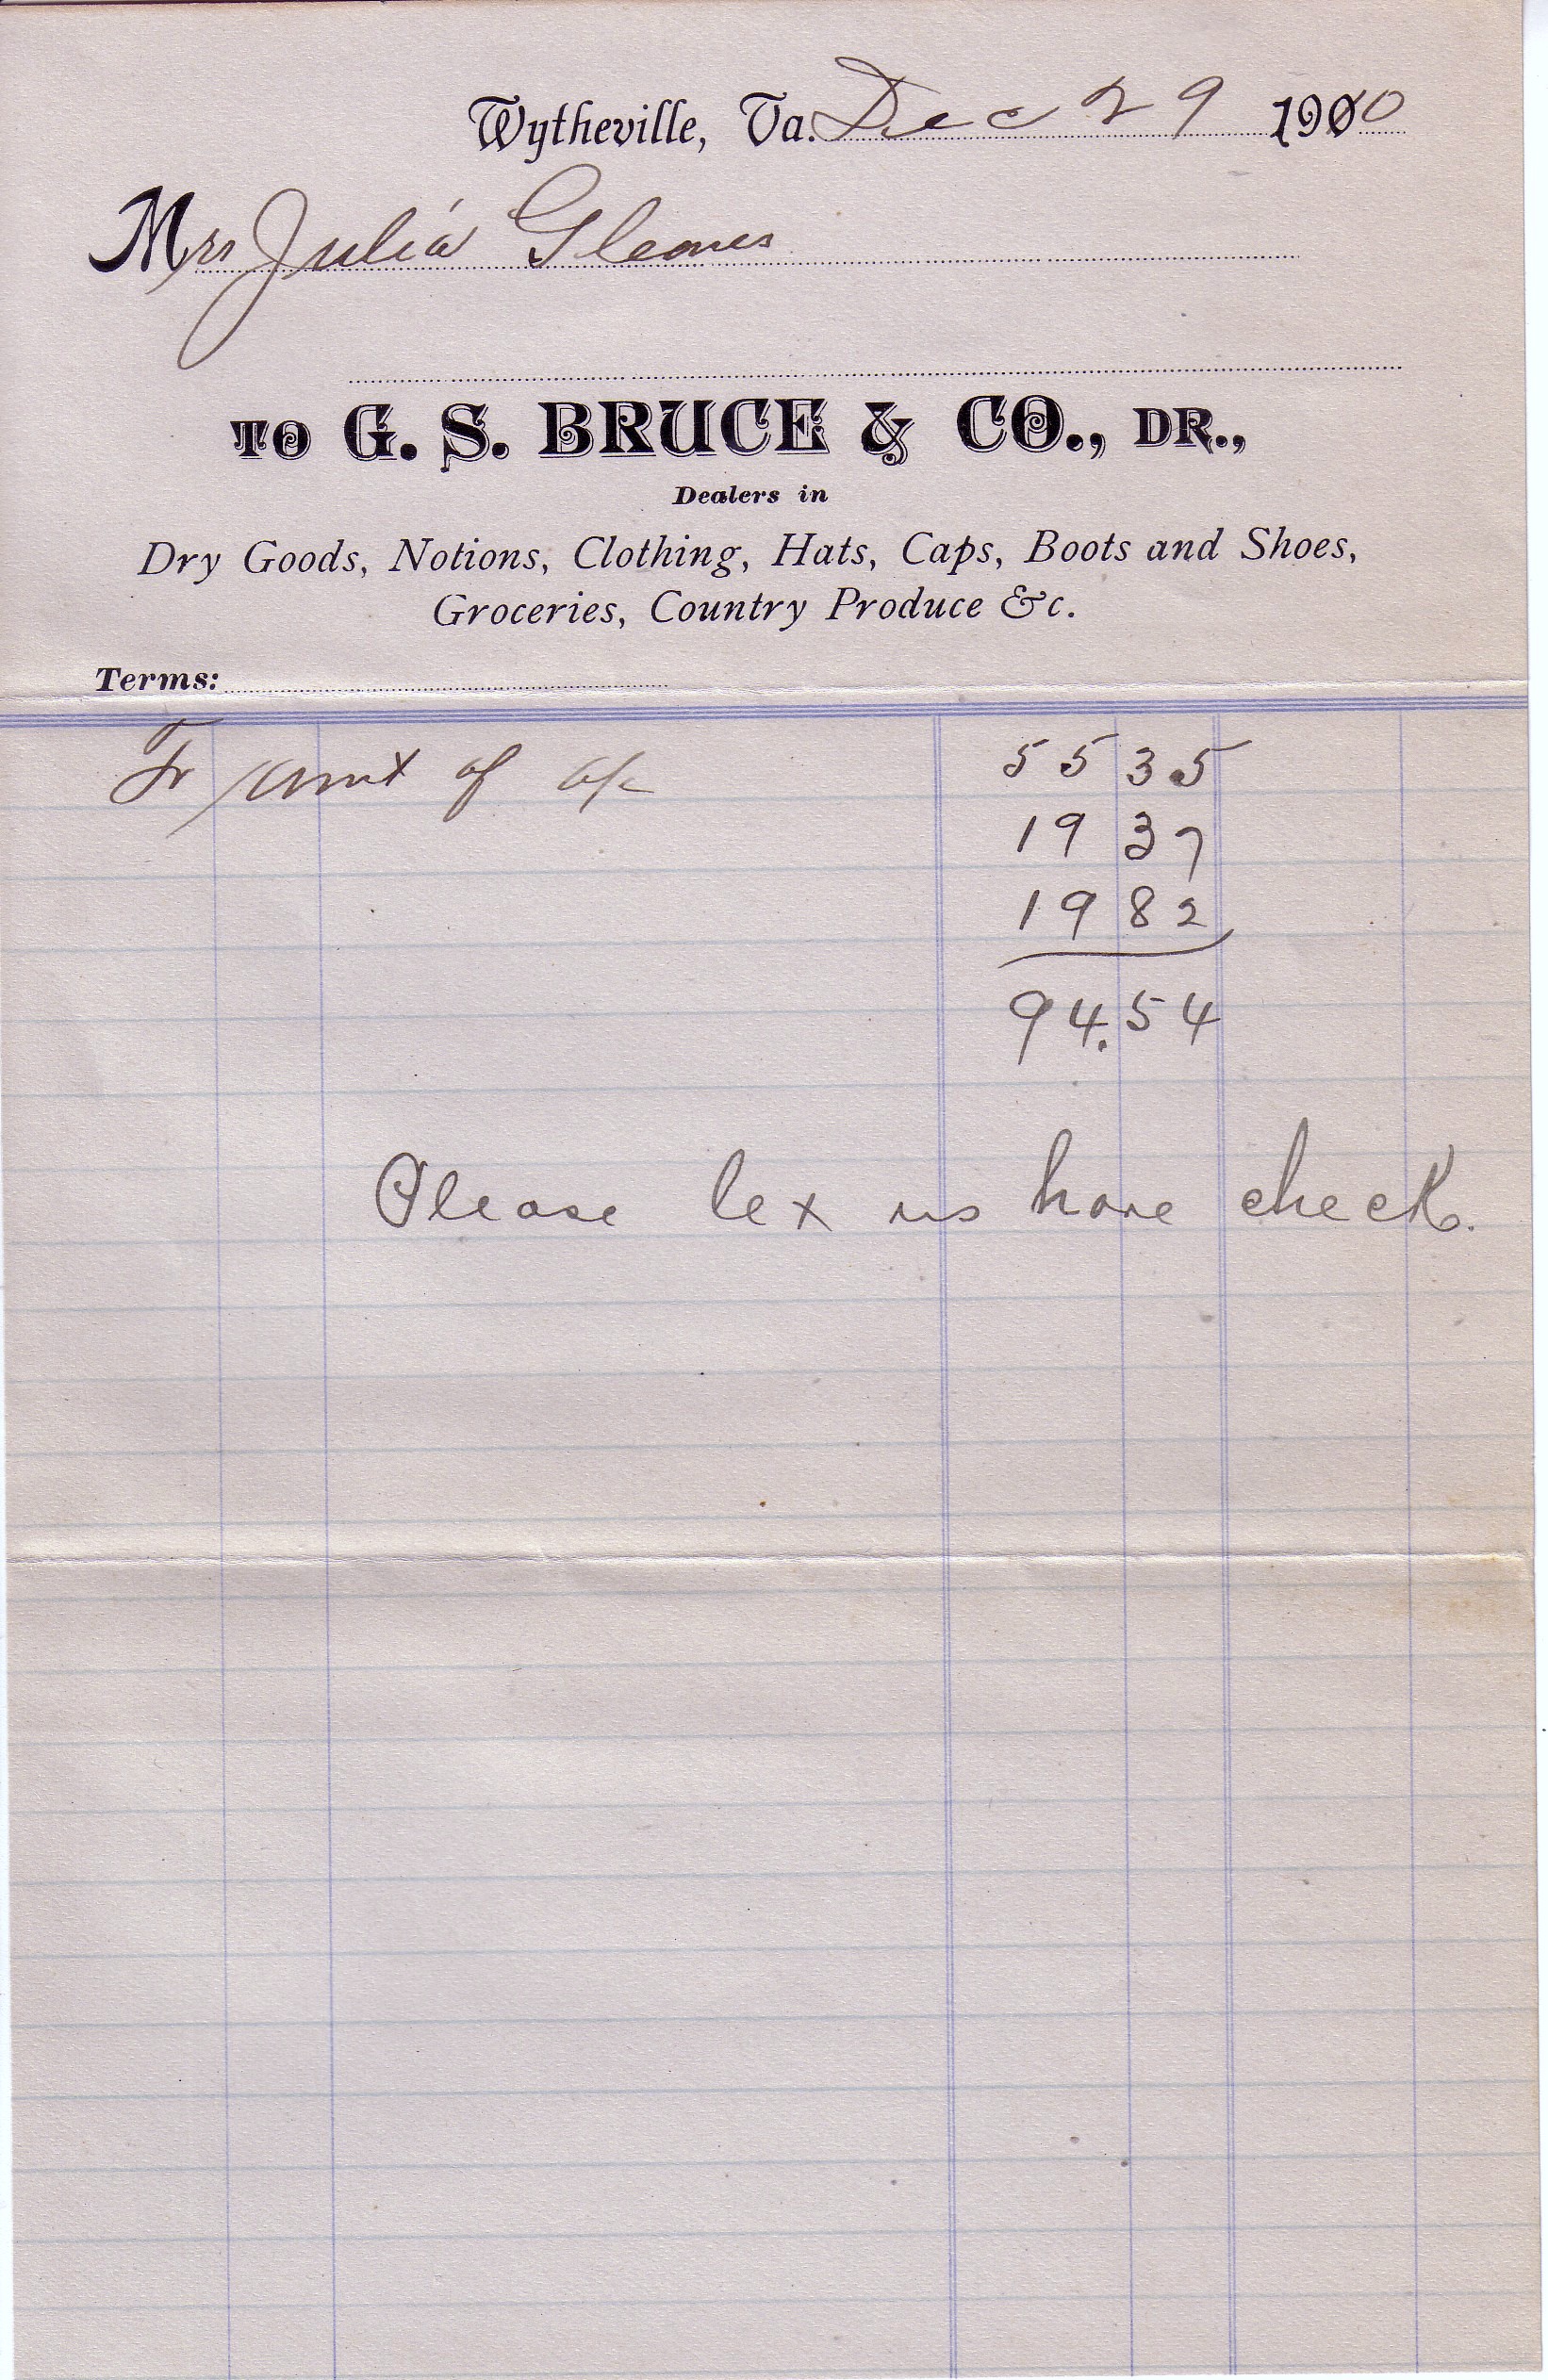 Wytheville, Va. Dec 29 1900
Mrs Julia Gleaves
TO G. S. BRUCE & CO., DR.,
Dealers in
Dry Goods, Notions, Clothing, Hats, Caps, Boots and Shoes,
Groceries, Country Produce &c.
Terms:
To Amt of a/c 55 35
19 37
19 82
94.54
Please let us have check.